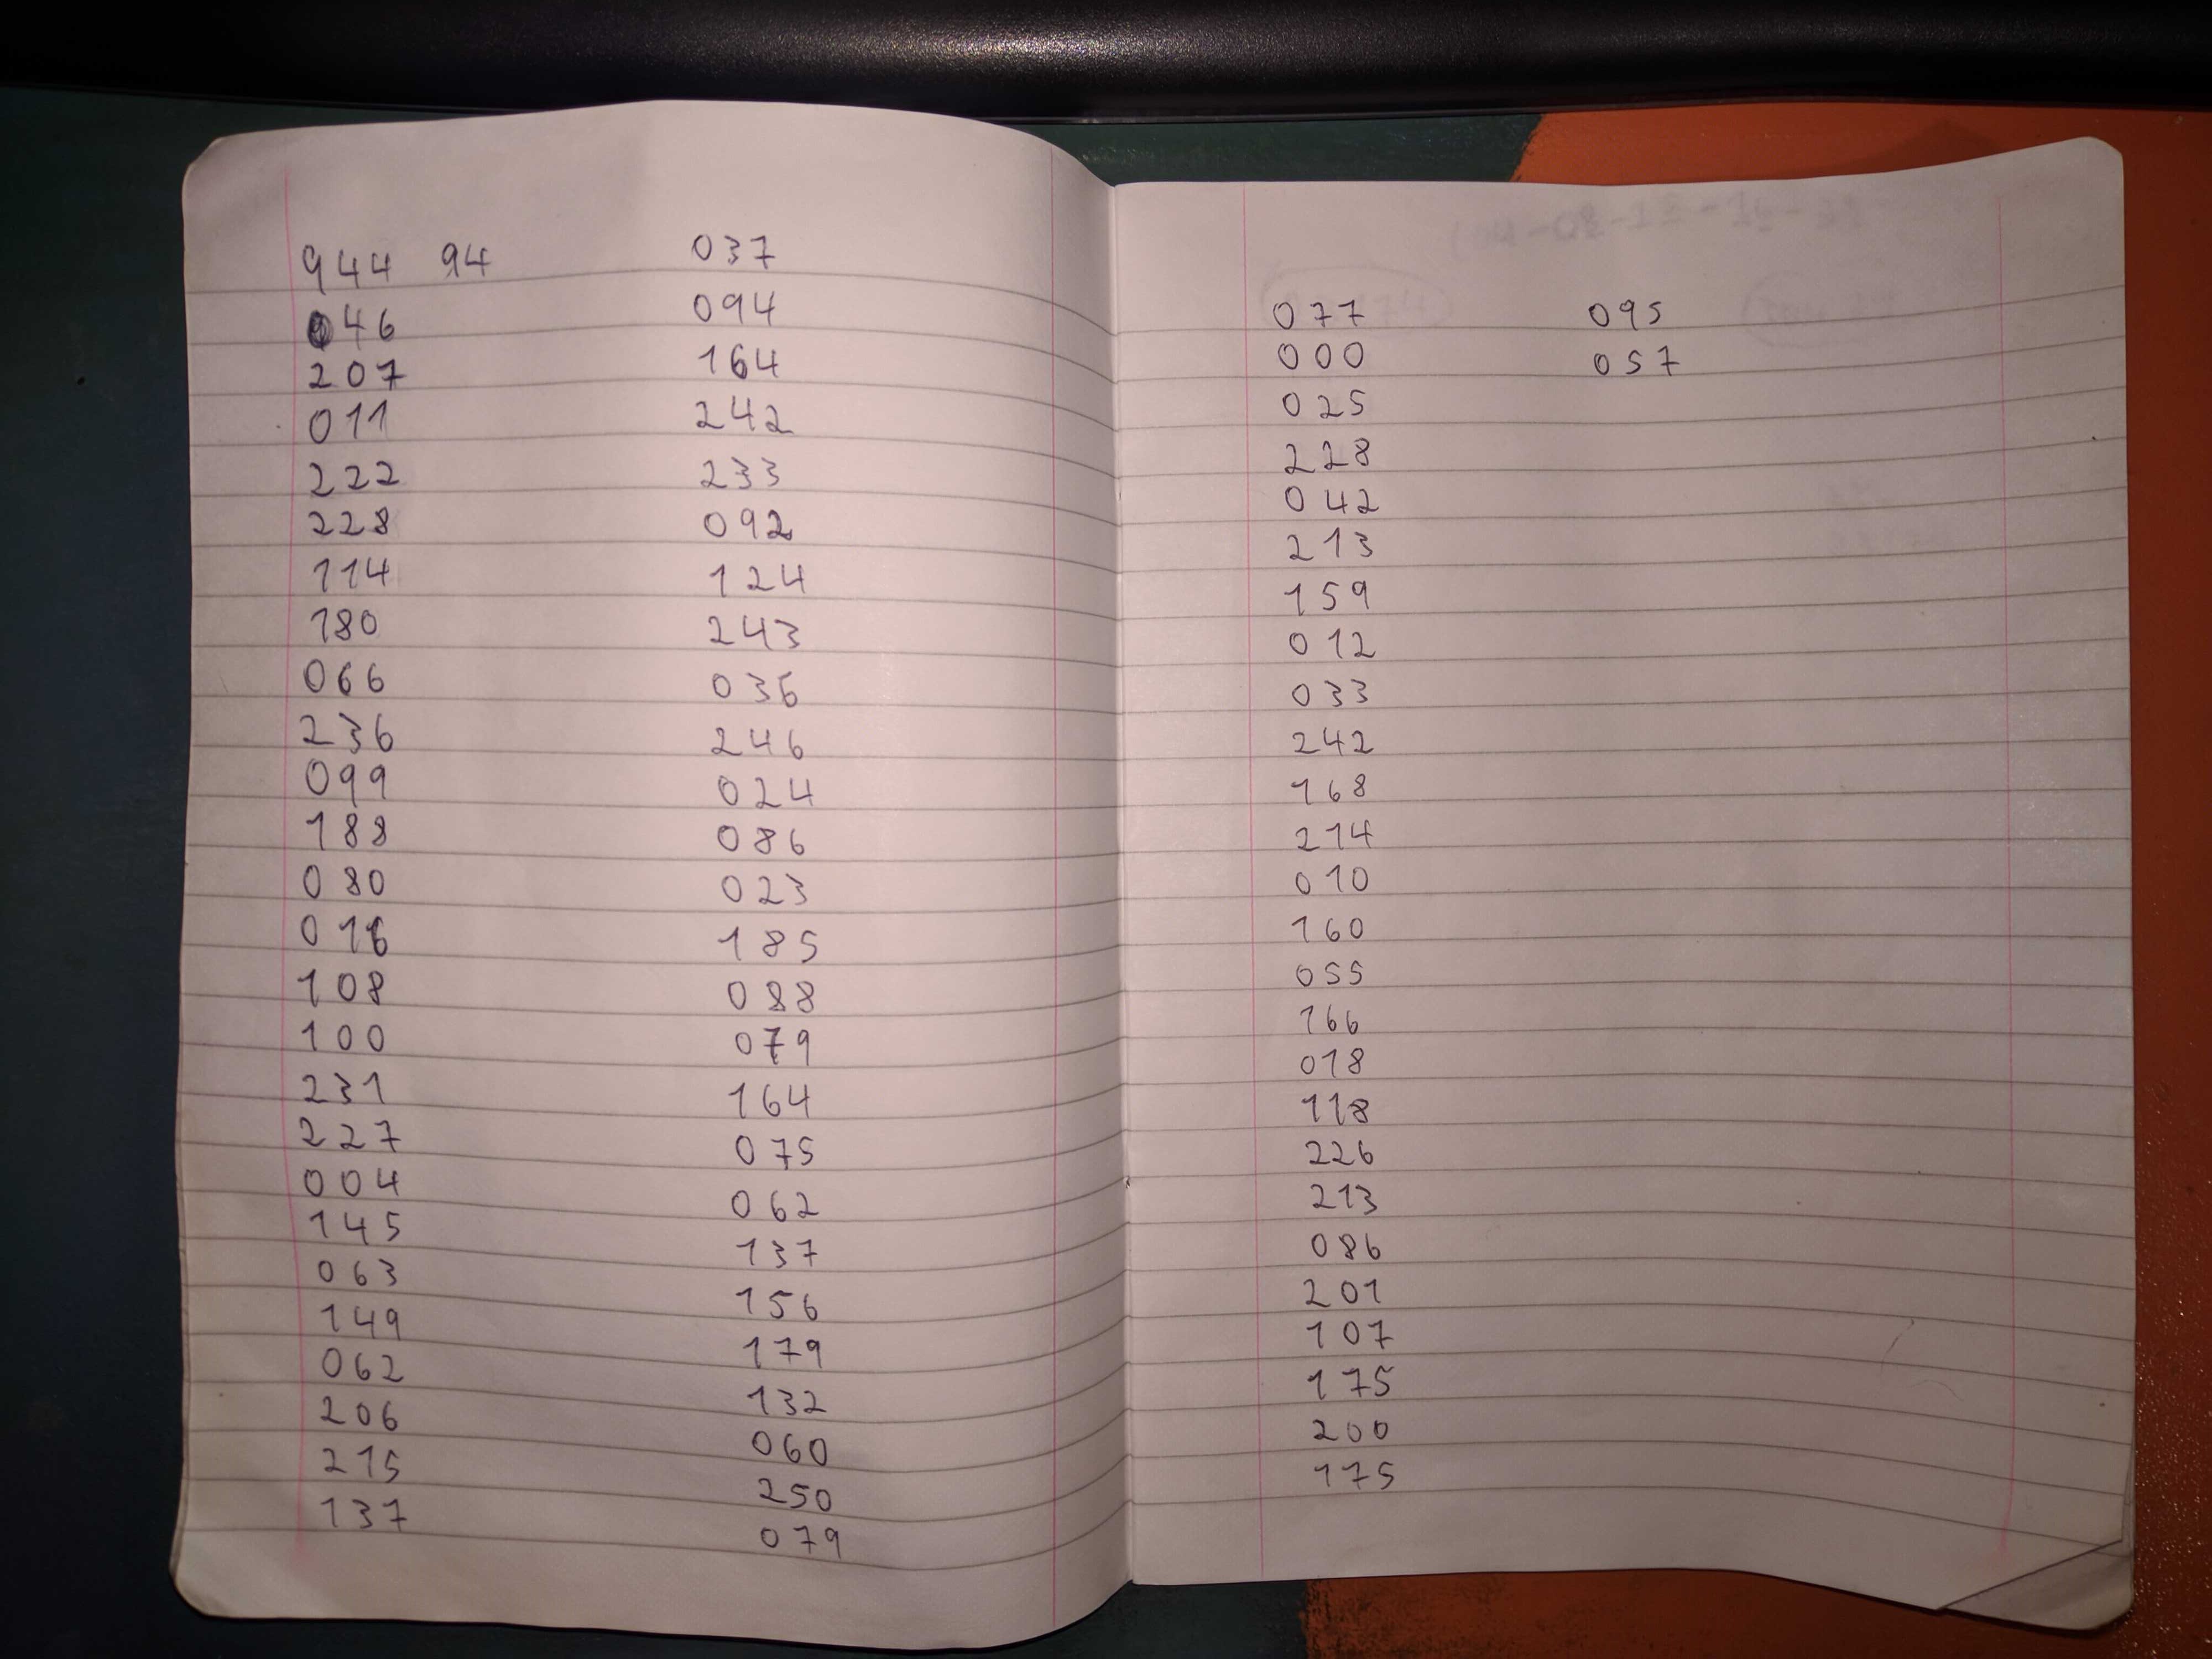 944 94
046
207
011
222
228
114
180
066
236
099
188
080
016
108
100
231
227
004
145
063
149
062
206
215
137
037
094
164
242
233
092
124
243
036
246
024
086
023
185
088
079
164
075
062
137
156
179
132
060
250
079
077
000
025
228
042
213
159
012
033
242
168
214
010
160
055
166
018
118
226
213
086
201
107
175
200
175
095
057